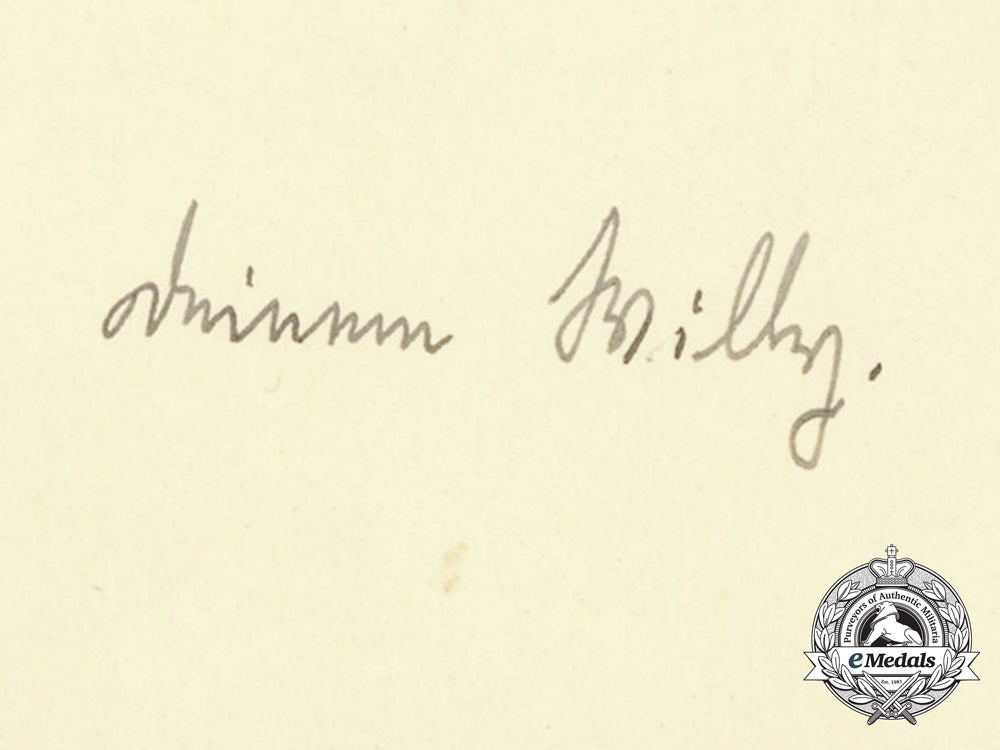 deinem Willy.
Purveyors of Authentic Militaria
eMedals
Est. 1981